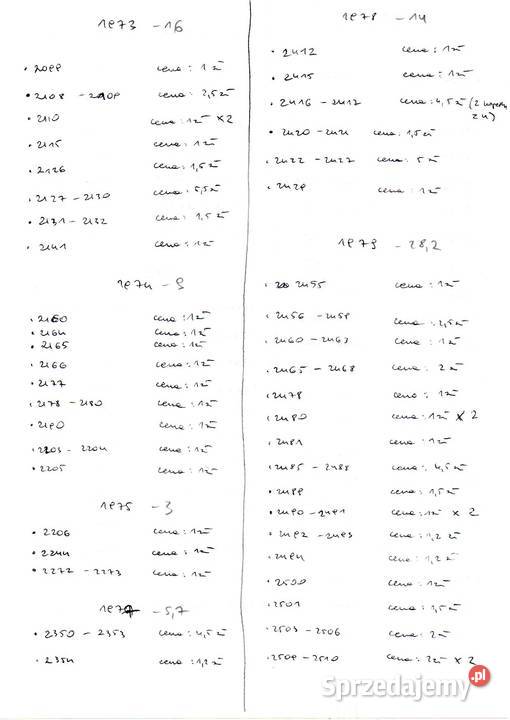 1973 - 16
• 2099 cena: 1 zł
• 2108 - 2109 cena: 2,5 zł
• 2110 cena: 1 zł x 2
• 2115 cena: 1 zł
• 2126 cena: 1,5 zł
• 2127 - 2130 cena: 5,5 zł
• 2131 - 2132 cena: 1,5 zł
• 2141 cena: 1 zł
1974 - 9
• 2160 cena: 1 zł
• 2164 cena: 1 zł
• 2165 cena: 1 zł
• 2166 cena: 1 zł
• 2177 cena: 1 zł
• 2178 - 2180 cena: 1 zł
• 2190 cena: 1 zł
• 2203 - 2204 cena: 1 zł
• 2205 cena: 1 zł
1975 - 3
• 2206 cena: 1 zł
• 2244 cena: 1 zł
• 2272 - 2273 cena: 1 zł
1977 - 5,7
• 2350 - 2353 cena: 4,5 zł
• 2354 cena: 1,2 zł
1978 - 14
• 2412 cena: 1 zł
• 2415 cena: 1 zł
• 2416 - 2417 cena: 4,5 zł (2
z 4)
• 2420 - 2421 cena: 1,5 zł
• 2422 - 2427 cena: 5 zł
• 2429 cena: 1 zł
1979 - 28,2
• 2455 cena: 1 zł
• 2456 - 2459 cena: 2,5 zł
• 2460 - 2463 cena: 1 zł
• 2465 - 2468 cena: 2 zł
• 2478 cena: 1 zł
• 2480 cena: 1 zł x 2
• 2481 cena: 1 zł
• 2485 - 2488 cena: 4,5 zł
• 2489 cena: 1,5 zł
• 2490 - 2491 cena: 1 zł x 2
• 2492 - 2493 cena: 1,2 zł
• 2494 cena: 1,2 zł
• 2500 cena: 1 zł
• 2501 cena: 1,5 zł
• 2503 - 2506 cena: 2 zł
• 2509 - 2510 cena: 2 zł x 2
Sprzedajemy.pl